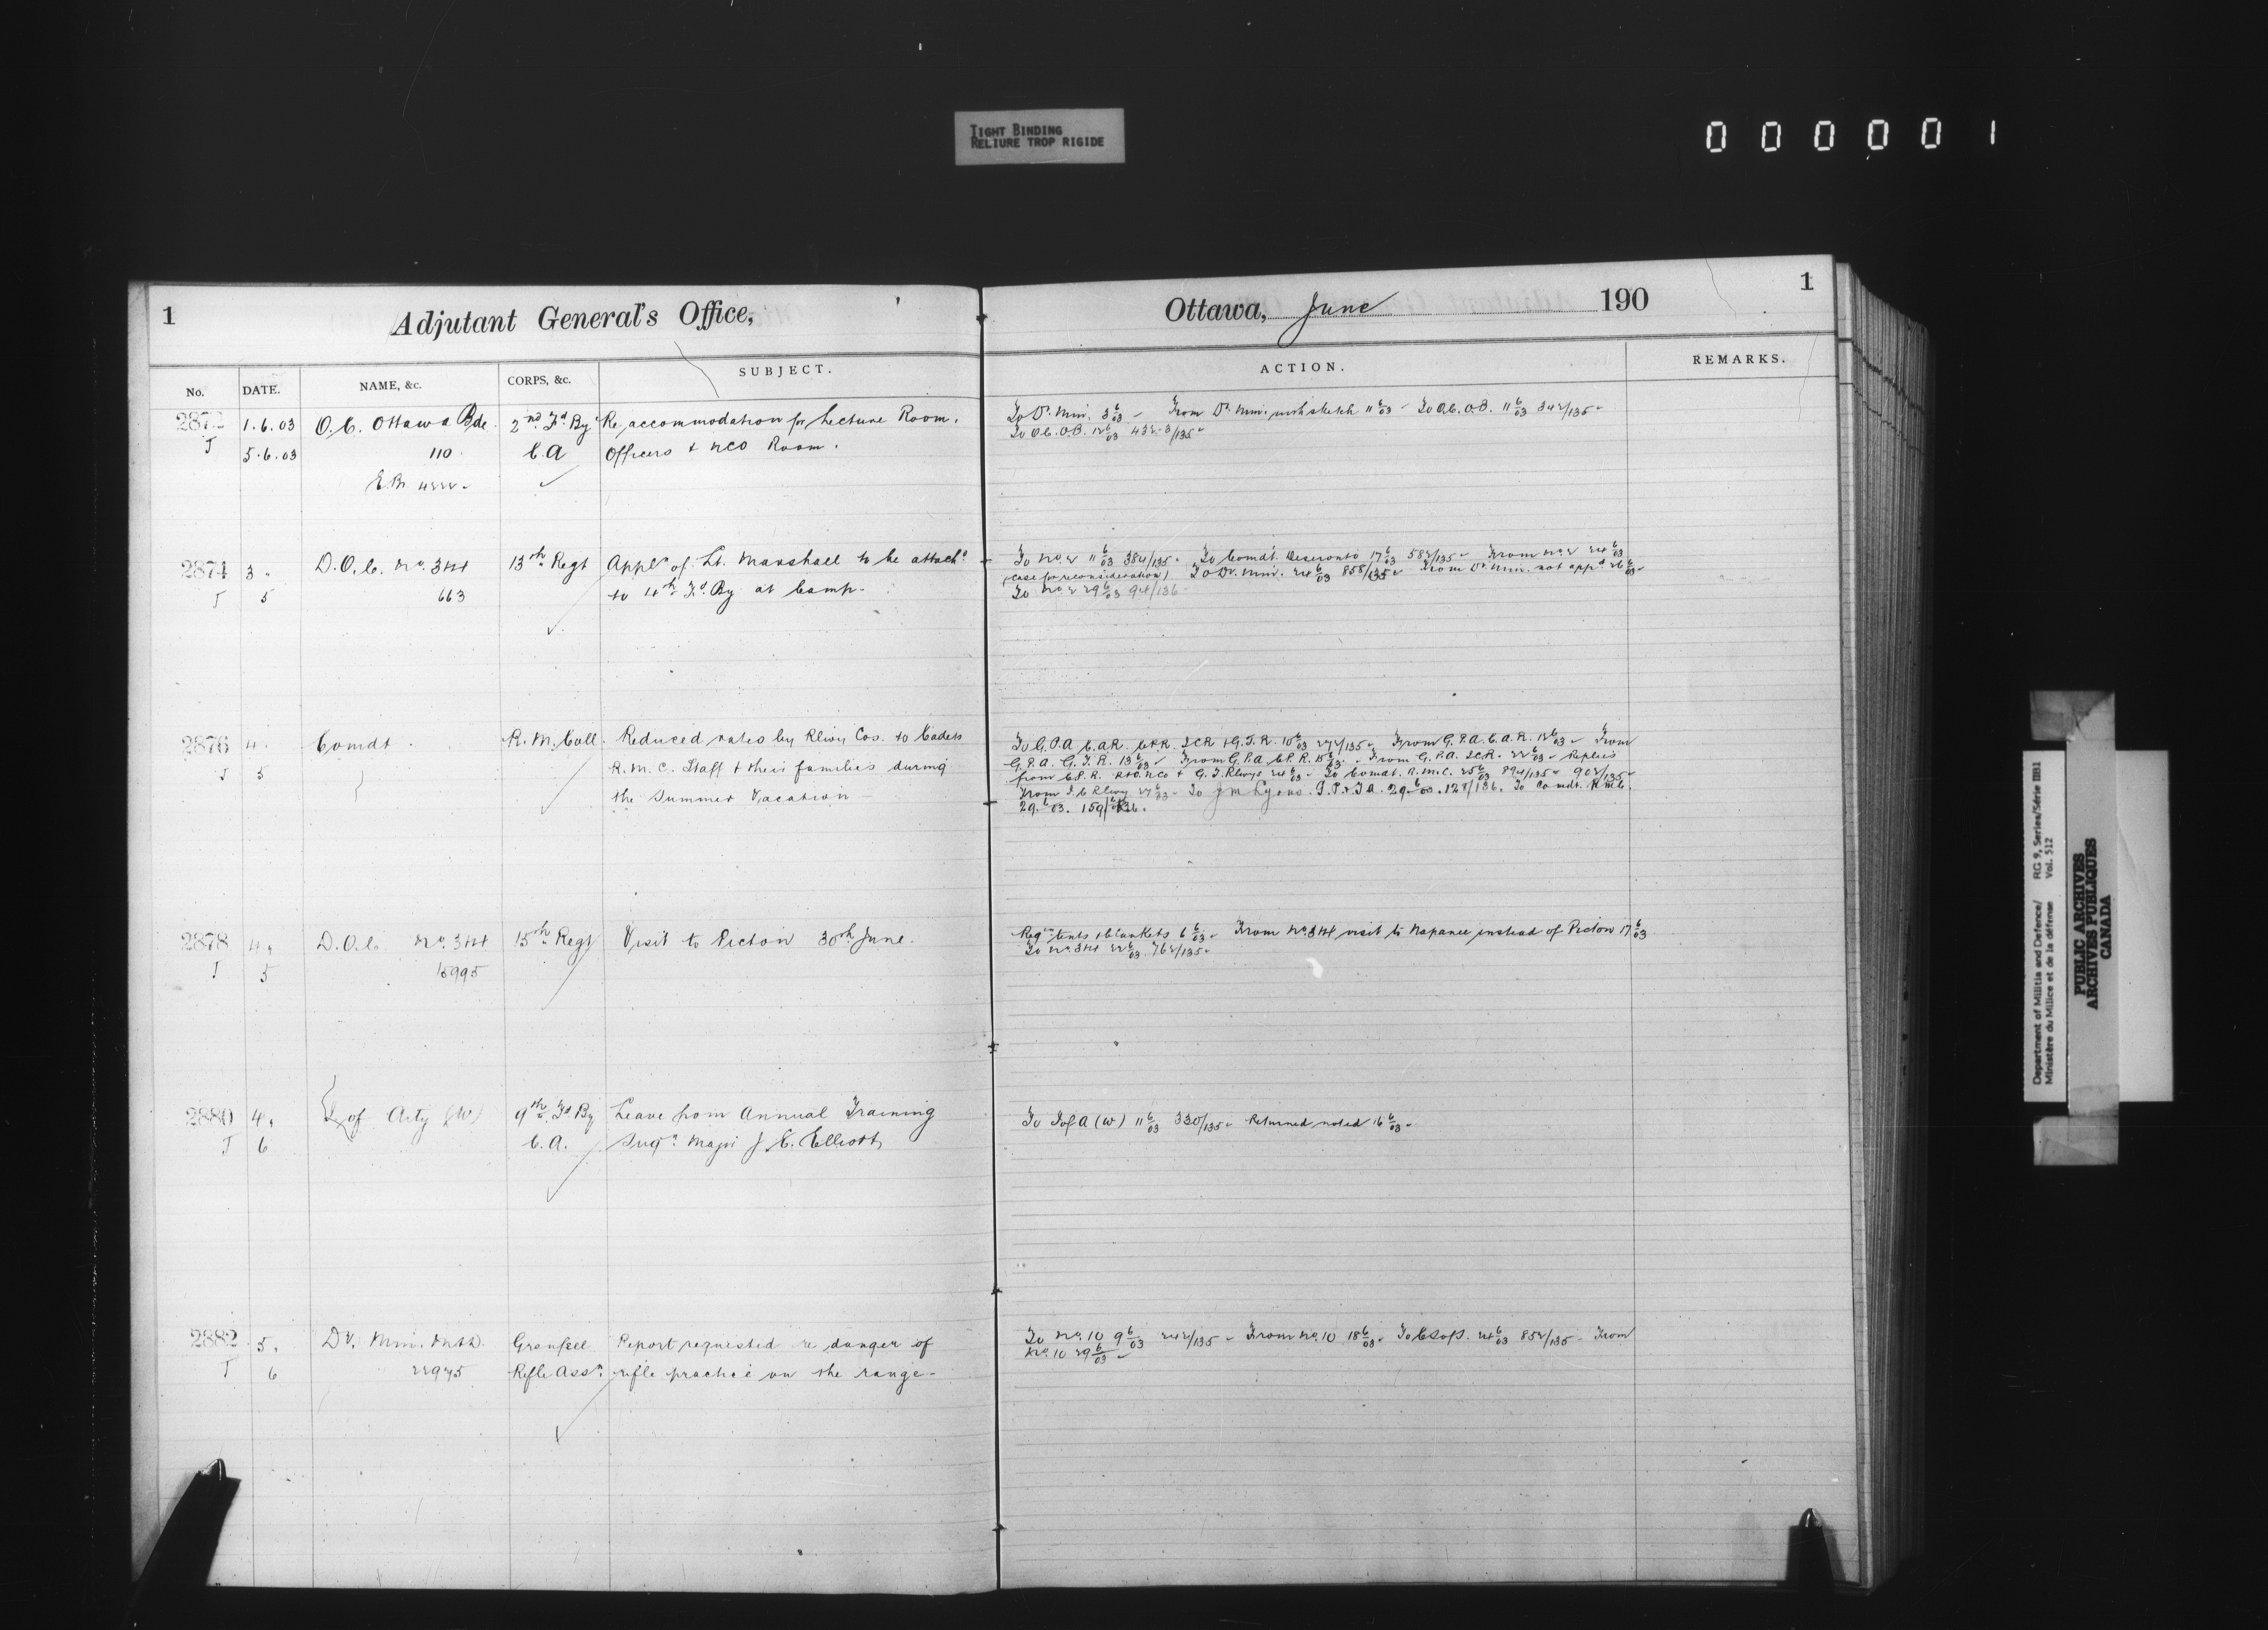 TIGHT BINDING
RELIURE TROP RIGIDE
000001
1
Adjutant General's Office,
Ottawa, June 190
1
No.
DATE.
NAME, &c.
CORPS, &c.
SUBJECT.
ACTION.
REMARKS.
1.6.03 O.C. Ottawa Bde. 2nd Fd By Re accommodation for Lecture Room.
5.6.03 110 C.A Officers & NCO Room.
To Dr. Min. 3 6/03 From Dr. Min. with sketch 11 6/03 To O.C. O.B. 11 6/03 342/135
To O.C. O.B. 12 6/03 432-3/135
2874 3 D.O.C. No. 3&4 13th Regt Appln of Lt. Marshall to be attachd
5 663 to 4th Fd By at Camp.
To No 2 11 6/03 384/135 To Comdt. Deseronto 17 6/03 582/135 From No 2 24 6/03
(case for reconsideration) To Dr. Min. 24 6/03 858/135 From Dr. Min. not appd 26 6/03
To No 2 29 6/03 94/136
2876 4. Comdt. R.M. Coll. Reduced rates by Rlwy Cos. to Cadets
5 R.M.C. Staff & their families during
the Summer Vacation
To G.P.A C.A.R. C.P.R. ICR & G.T.R. 10 6/03 272/135 From G.P.A. C.A.R. 12 6/03 From
G.P.A. G.T.R. 13 6/03 From G.P.A C.P.R. 15 6/03 From G.P.A. ICR. 22 6/03 Replies
from C.P.R. R&O.NCo & G.T. Rlwys 24 6/03 To Comdt. R.M.C. 25 6/03 894/135 902/135
From I.C Rlwy 27 6/03 To J M Lyons. G.P.&T A. 29 6/03. 128/136. To Comdt. R M C.
29. 6/03. 159/136.
2878 4. D.O.C. No. 3&4 15th Regt Visit to Picton 30th June.
5 15995
Reqn tents & blankets 6 6/03 From No. 3&4 visit to Napanee instead of Picton 17 6/03
To No. 3&4 22 6/03 762/135
2880 4. I of Arty (W) 9th Fd By Leave from Annual Training
6 C.A. Surgn Major J E. Elliott
To I of A (W) 11 6/03 330/135 Returned noted 16 6/03
2882 5. Dr. Min. M&D. Grenfell Report requested re danger of
6 22975 Rifle Assn. rifle practice on the range.
To No. 10 9 6/03 242/135 From No. 10 18 6/03 24 6/03 852/135 From
No. 10 29 6/03
Department of Militia and Defence/ RG 9, Series/Série IIB1
Ministère du Milice et de la défense Vol. 512
PUBLIC ARCHIVES
ARCHIVES PUBLIQUES
CANADA